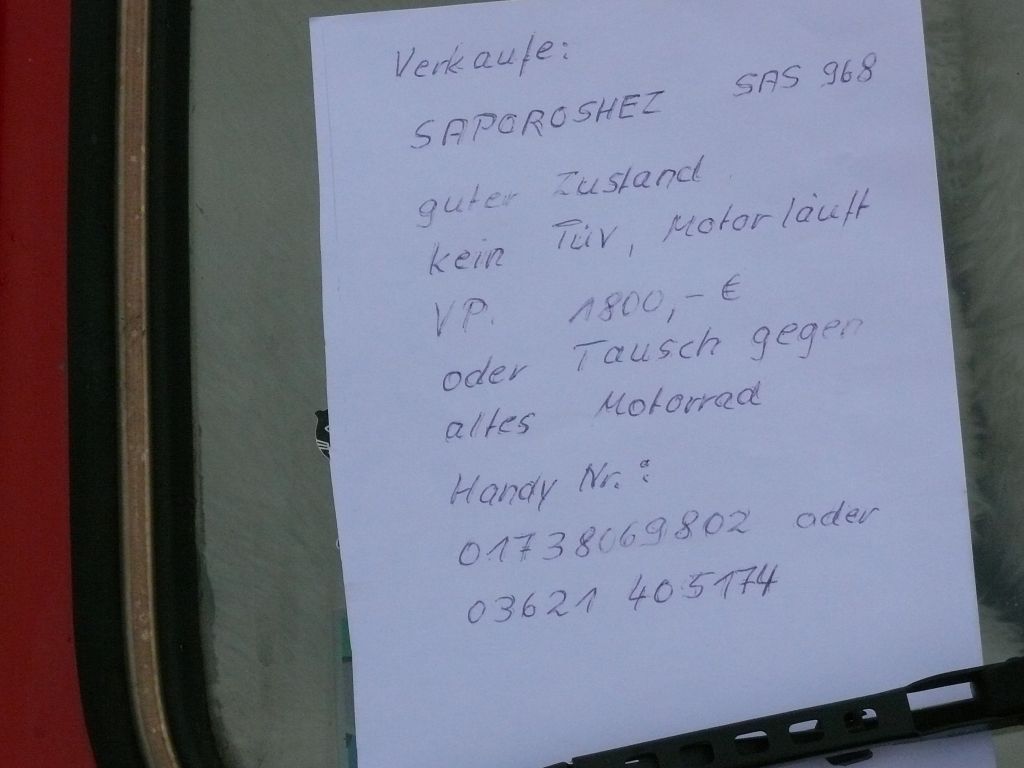 Verkaufe:
SAPOROSHEZ SAS 968
guter Zustand
kein Tüv, Motor läuft
VP. 1800,- €
oder Tausch gegen
altes Motorrad
Handy Nr.:
01738069802 oder
03621 405174